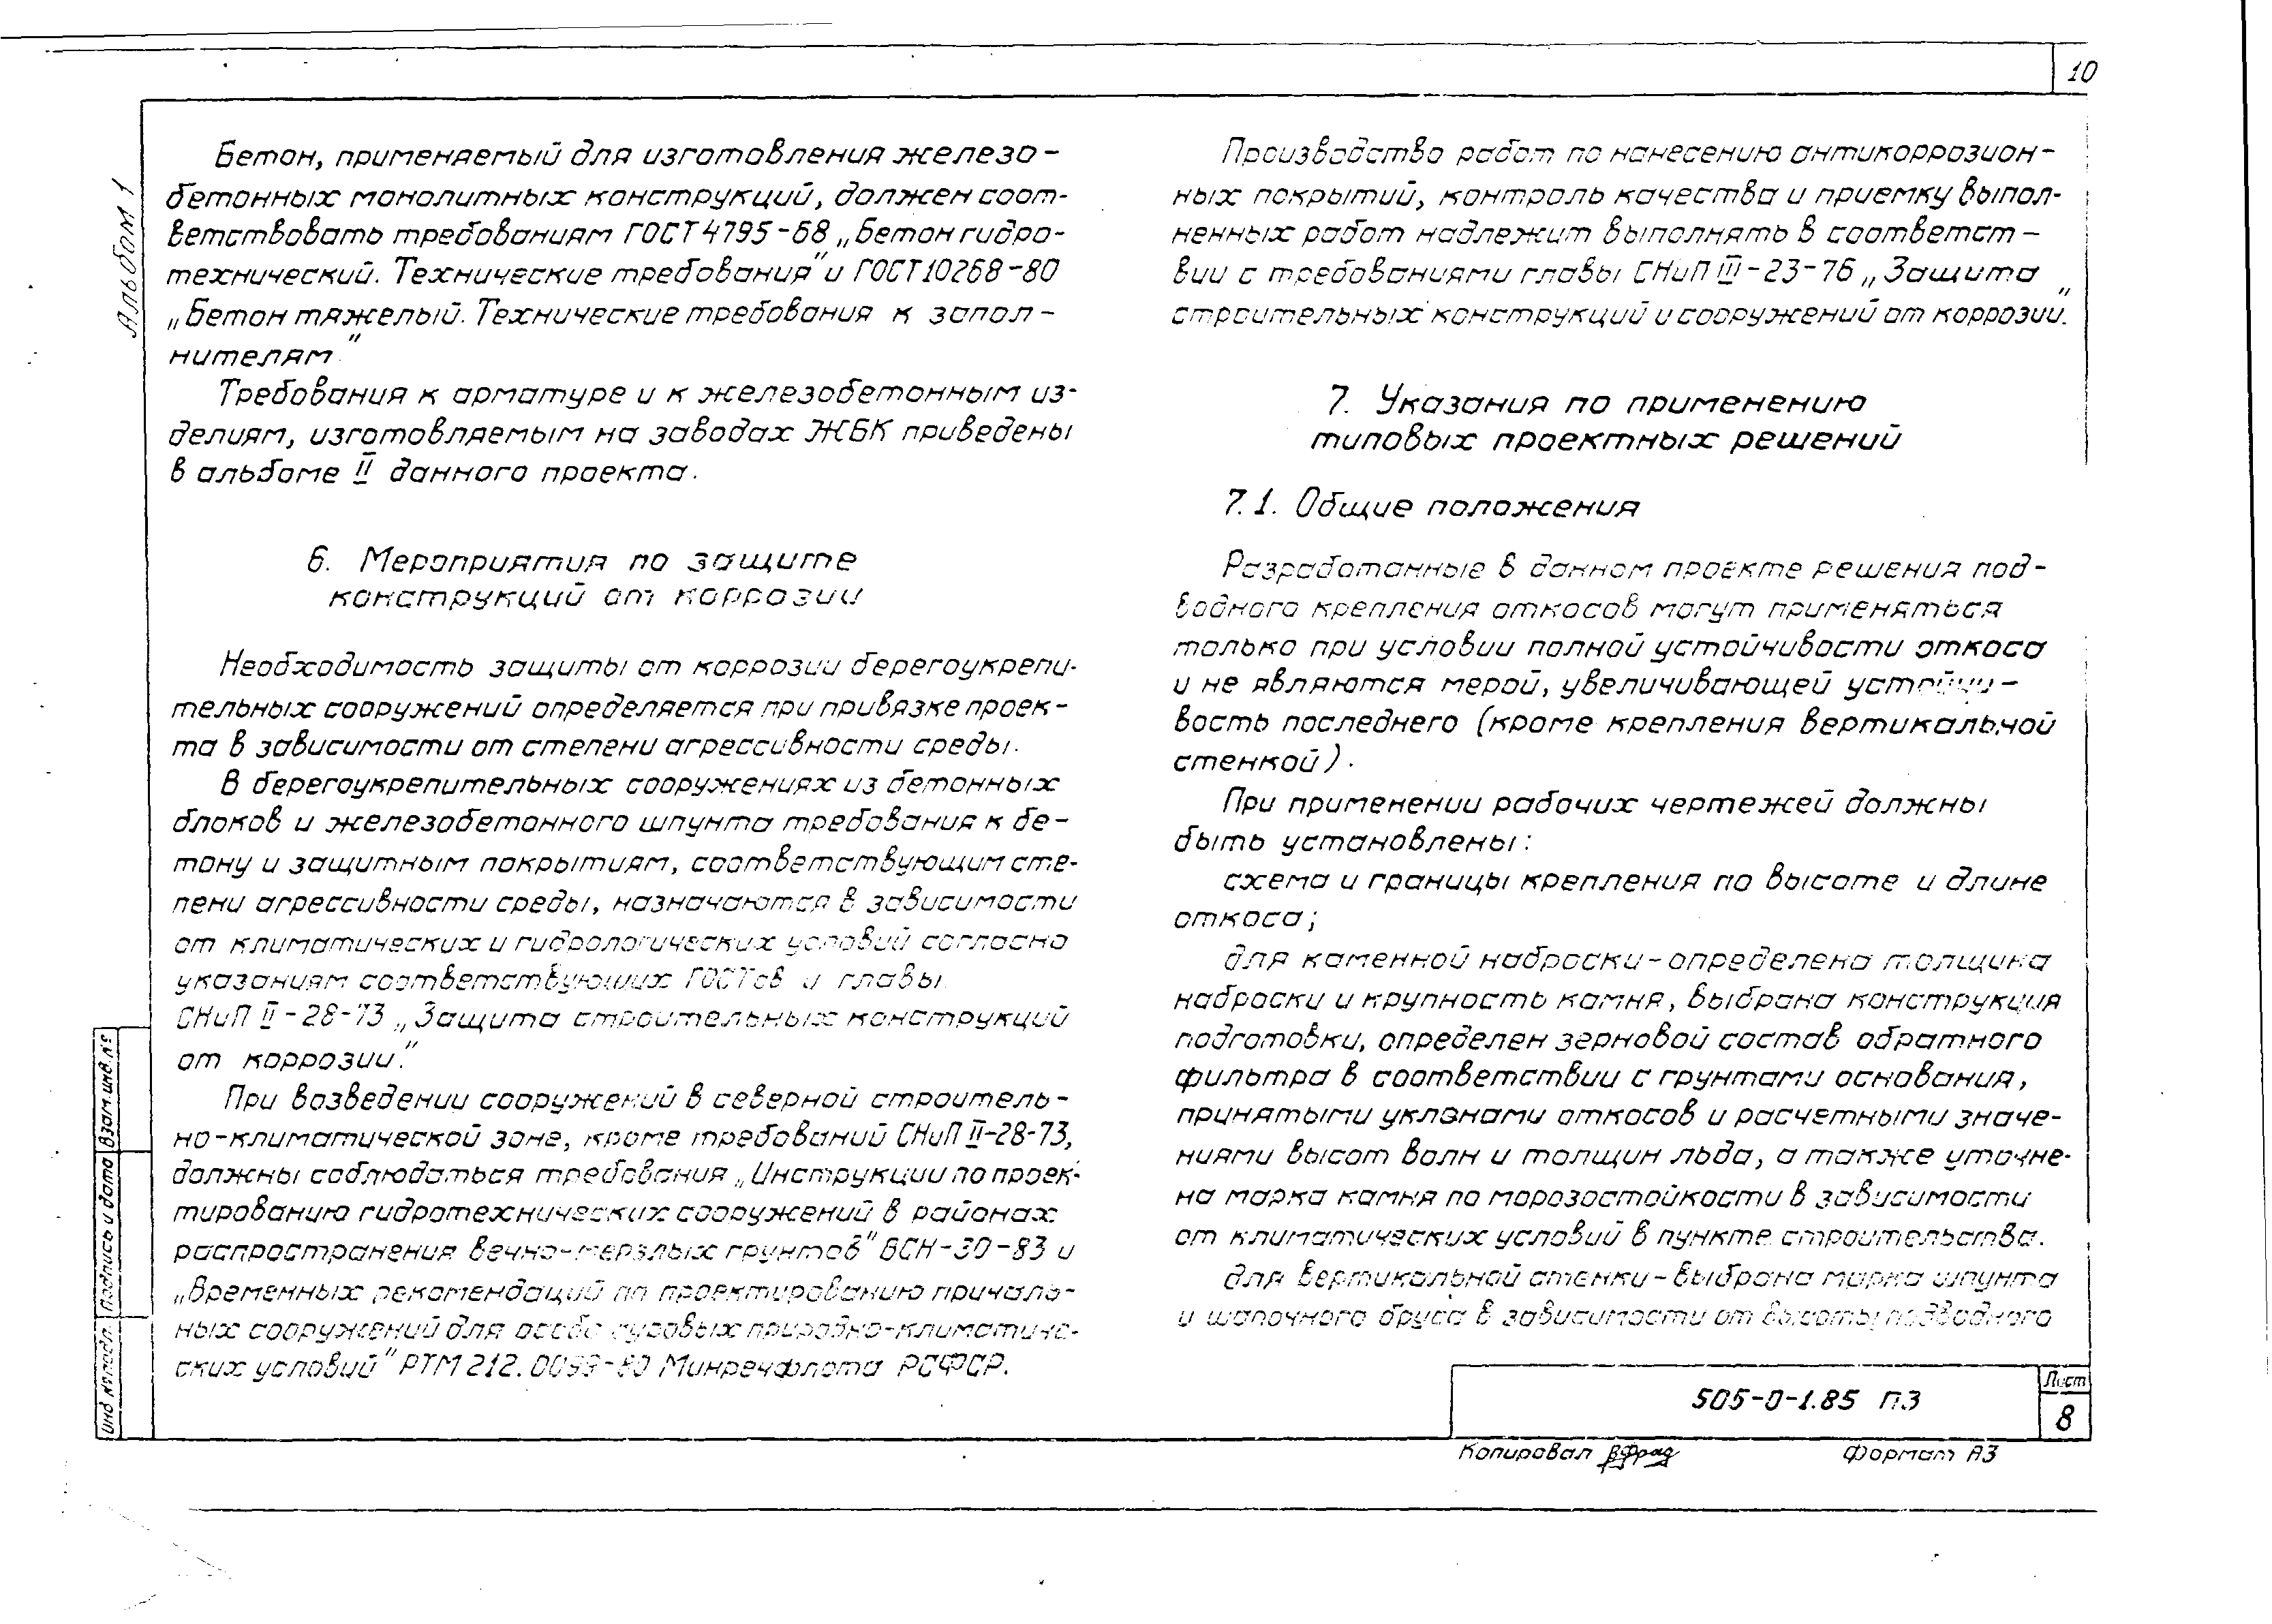 10
Альбом 1
Бетон, применяемый для изготовления железо-
бетонных монолитных конструкций, должен соот-
ветствовать требованиям ГОСТ 4795-68 „Бетон гидро-
технический. Технические требования" и ГОСТ 10268-80
„Бетон тяжелый. Технические требования к запол-
нителям"
Требования к арматуре и к железобетонным из-
делиям, изготовляемым на заводах ЖБК приведены
в альбоме II данного проекта.
6. Мероприятия по защите
конструкций от коррозии
Необходимость защиты от коррозии берегоукрепи-
тельных сооружений определяется при привязке проек-
та в зависимости от степени агрессивности среды.
В берегоукрепительных сооружениях из бетонных
блоков и железобетонного шпунта требования к бе-
тону и защитным покрытиям, соответствующим сте-
пени агрессивности среды, назначаются в зависимости
от климатических и гидрологических условий согласно
указаниям соответствующих ГОСТов и главы
СНиП II-28-73 „Защита строительных конструкций
от коррозии."
При возведении сооружений в северной строитель-
но-климатической зоне, кроме требований СНиП II-28-73,
должны соблюдаться требования „Инструкции по проек-
тированию гидротехнических сооружений в районах
распространения вечно-мерзлых грунтов" ВСН-30-83 и
„Временных рекомендаций по проектированию причаль-
ных сооружений для особо суровых природно-климатиче-
ских условий" РТМ 212.0099-80 Минречфлота РСФСР.
Производство работ по нанесению антикоррозион-
ных покрытий, контроль качества и приемку выпол-
ненных работ надлежит выполнять в соответст-
вии с требованиями главы СНиП III-23-76 „Защита
строительных конструкций и сооружений от коррозии."
7. Указания по применению
типовых проектных решений
7.1. Общие положения
Разработанные в данном проекте решения под-
водного крепления откосов могут применяться
только при условии полной устойчивости откоса
и не являются мерой, увеличивающей устойчи-
вость последнего (кроме крепления вертикальной
стенкой).
При применении рабочих чертежей должны
быть установлены:
схема и границы крепления по высоте и длине
откоса;
для каменной наброски-определена толщина
наброски и крупность камня, выбрана конструкция
подготовки, определен зерновой состав обратного
фильтра в соответствии с грунтами основания,
принятыми уклонами откосов и расчетными значе-
ниями высот волн и толщин льда, а также уточне-
на марка камня по морозостойкости в зависимости
от климатических условий в пункте строительства.
для вертикальной стенки-выбрана марка шпунта
и шапочного бруса в зависимости от высоты подводного
505-0-1.85 ПЗ
Лист
8
Копировал
Формат А3
Инв № подл.
Подпись и дата
Взам. инв. №